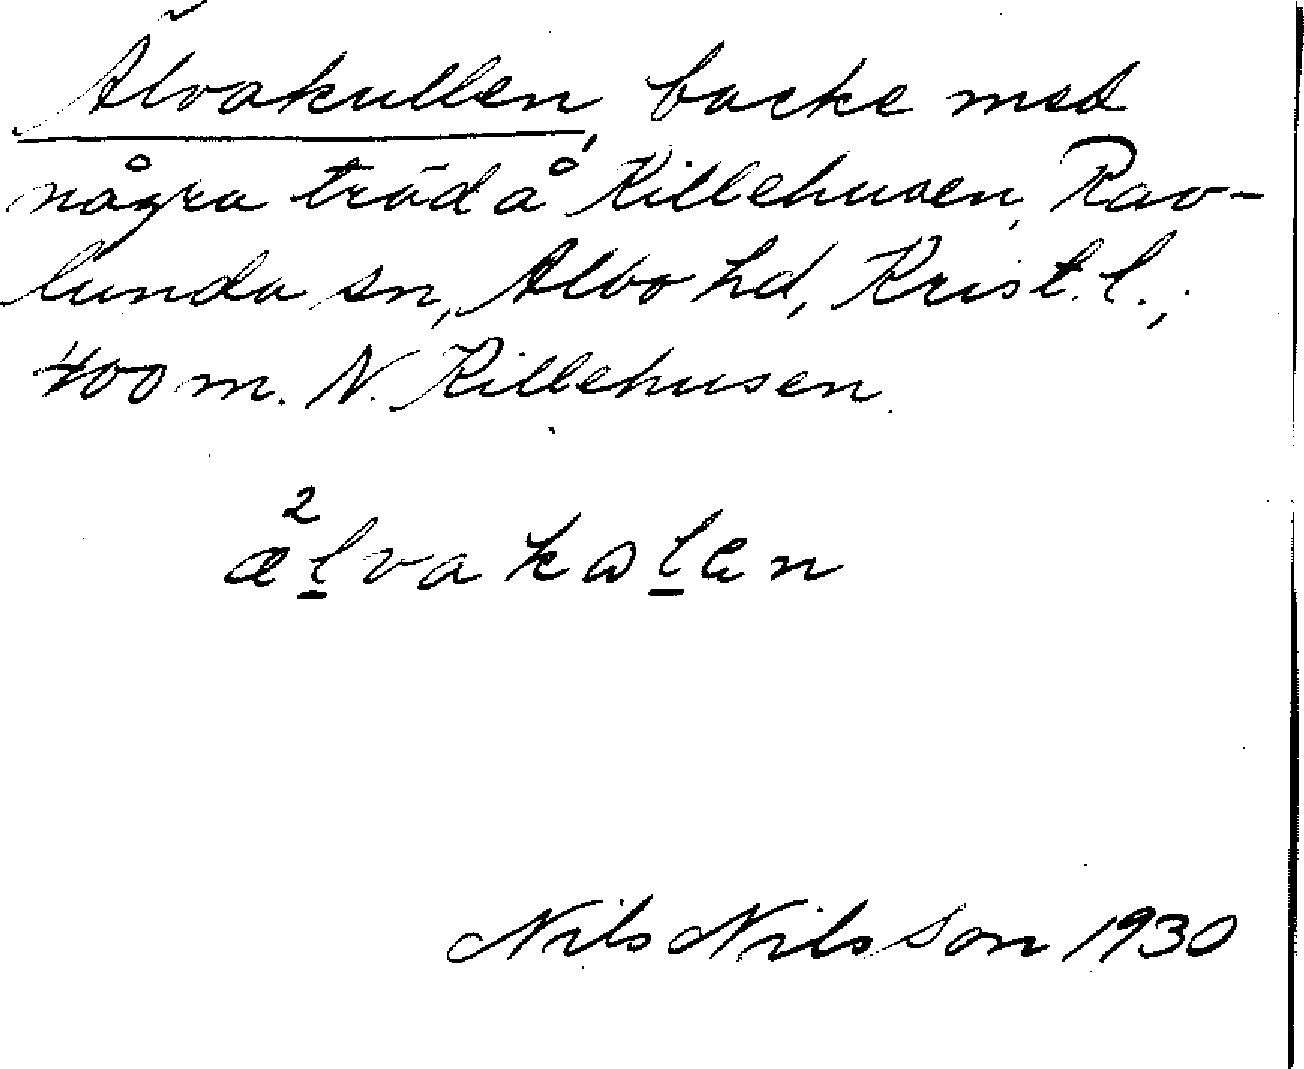 Älvakullen, backe med
några träd å Killehusen, Rav-
lunda sn, Albo hd, Krist. l.,
400 m. N. Killehusen.
²ælvakωlen
Nils Nilsson 1930